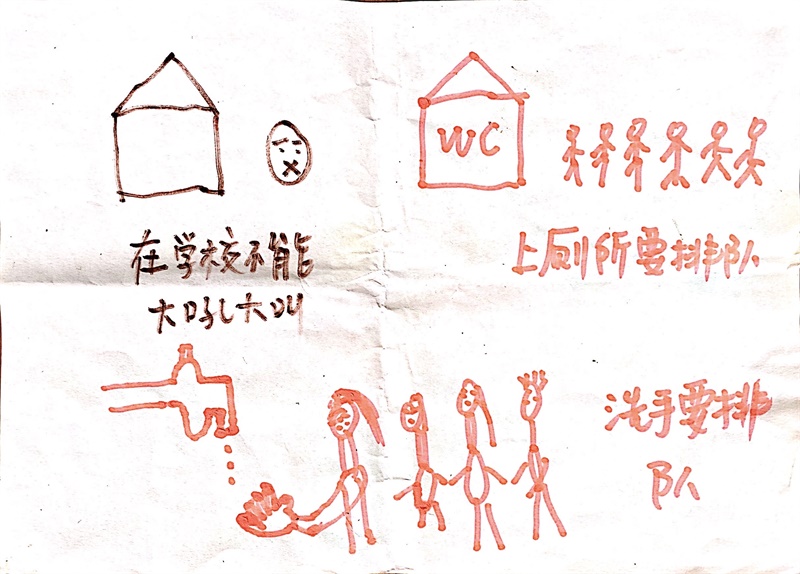 WC
在学校不能
大吼大叫
上厕所要排队
洗手要排
队